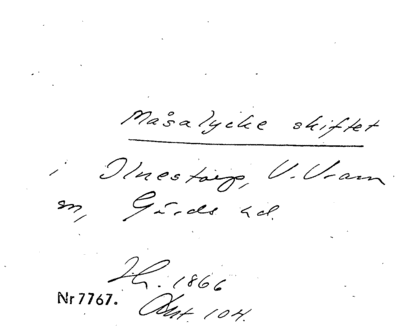 Måsalycke skiftet
i Ilnestorp, V. Vram
sn, Gärds hd.
1866
Nr 7767. 104.